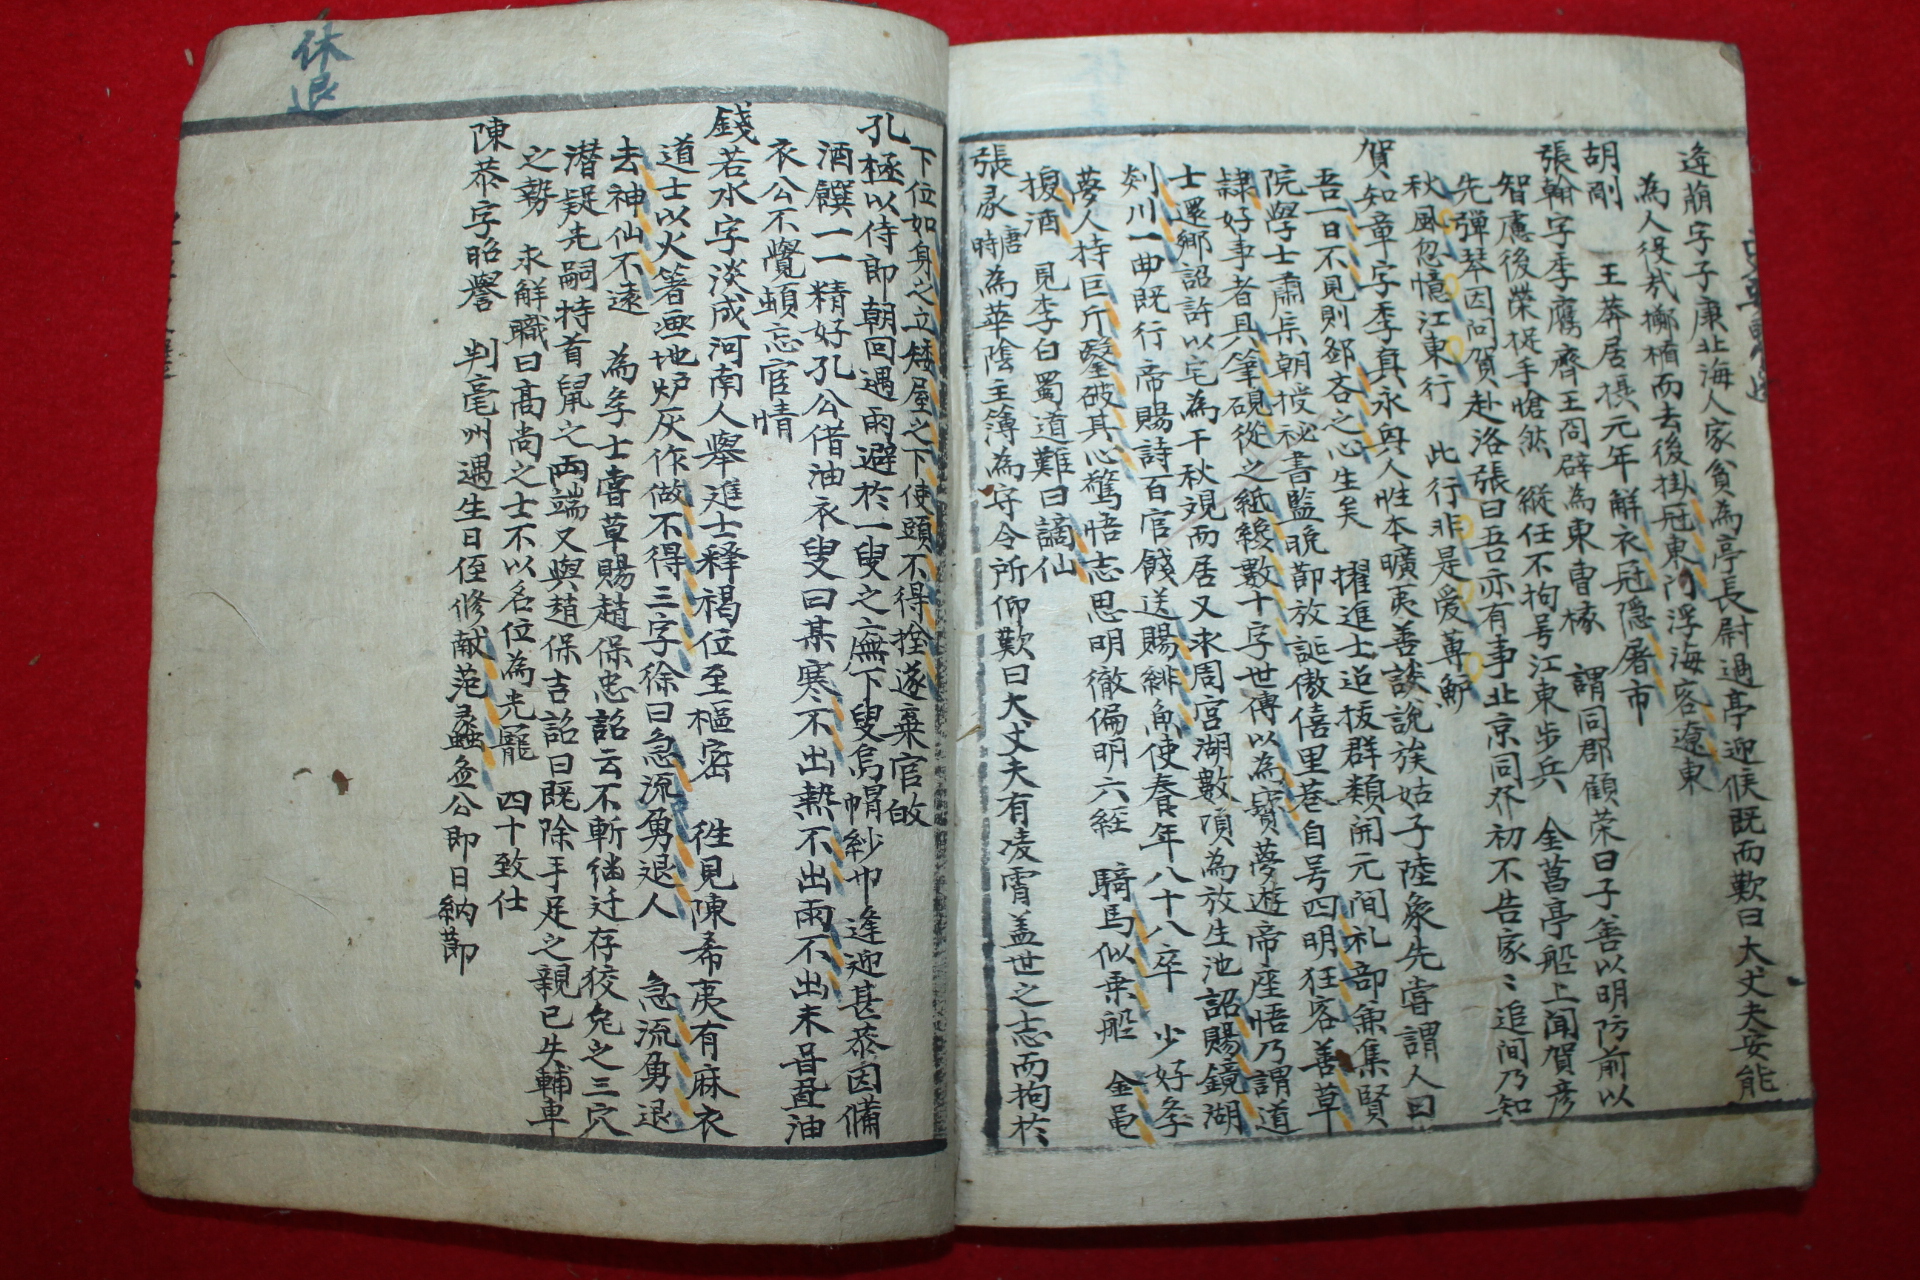 逄萠字子康北海人家貧為亭長尉過亭迎候既而歎曰大丈夫安能
為人役㢤擲楯而去後掛冠東門浮海客遼東
胡剛 王莽居摂元年解衣冠隱屠市
張翰字季鷹齊王冏辟為東曹掾 謂同郡顧荣曰子善以明防前以
智慮後榮捉手愴然 縱任不拘号江東步兵 金菖亭船上聞賀彦
先彈琴因问贺赴洛張曰吾亦有事北京同 初不告家〻追间乃知
秋風忽憶江東行 此行非是爱蓴鱸
賀知章字季真永興人性本曠夷善談説族姑子陸象先嘗謂人曰
吾一日不見則鄙吝之心生矣 擢進士迢拔群類開元间礼部兼集賢
院學士肅宗朝授秘書監晚節放誕傲僖里巷自号四明狂客善草
隷好事者具筆硯從之紙綫數十字世傳以為寶夢遊帝座悟乃謂道
士還鄉詔許以宅為千秋观而居又求周宮湖數頃為放生池詔賜鏡湖
剡川一曲既行 帝賜詩百官餞送賜緋魚使養年八十八卒 少好李
夢人持巨斤鑿破其心驚悟志思明徹偏明六経 騎馬似乗船 金黾
換酒 見李白蜀道難曰謫仙
張彖唐時為華隂主簿為守令所仰歎曰大丈夫有凌霄盖世之志而拘於
下位如身之立矮屋之下使頭不得抬遂棄官故
孔極以侍郎朝回遇雨避於一叟之廡下叟烏帽紗巾逢迎甚恭因備
酒饌一一精好孔公借油衣叟曰某寒不出熱不出雨不出未甞置油
衣公不覺頓忘宦情
錢若水字淡成河南人舉進士释褐位至樞密 徃見陳希夷有麻衣
道士以火箸画地炉灰作做不得三字徐曰急流勇退人 急流勇退
去神仙不遠 為李士嘗草賜趙保忠詔云不斬継迁存狡兔之三穴
潜疑光嗣持首鼠之两端又與趙保吉詔曰既除手足之親已失輔車
之勢 求解職曰高尚之士不以名位為光寵 四十致仕
陳恭字昭譽 判亳州遇生日侄修献范蠡 公即日納節
休退